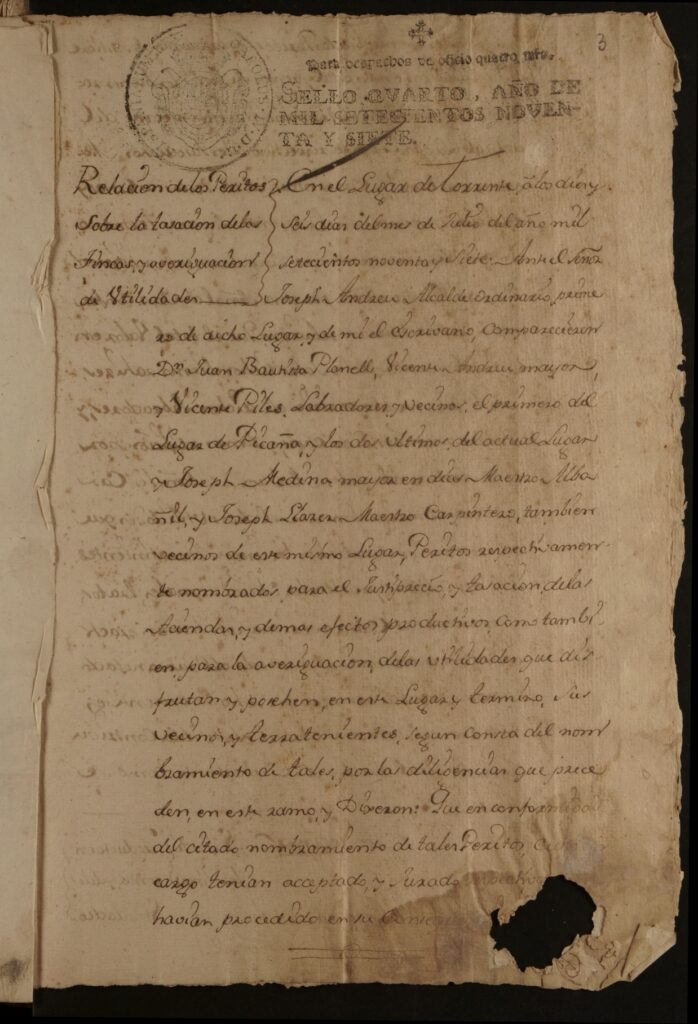 3
Para despachos de oficio quatro mrs.
SELLO QVARTO, AÑO DE
MIL SETECIENTOS NOVEN-
TA Y SIETE.
Relacion de los Peritos
Sobre la tasacion de las
Fincas, y averiguacion
de Utilidades
En el Lugar de Torrente, á los diez y
seis dias del mes de Julio del año mil
setecientos noventa y siete: Ante el Señor
Joseph Andreu Alcalde ordinario, prime
ro de dicho Lugar, y de mi el Escrivano, Comparecieron
Dn. Juan Bautista Planell, Vicente Andreu mayor,
y Vicente Piles, Labradores y vecinos, el primero del
Lugar de Picaña, y los dos ultimos del actual Lugar
y Joseph Medina mayor en dias Maestro Alba
ñil, y Joseph Llazer Maestro Carpintero, tambien
vecinos de este mismo Lugar, Peritos respectivamen
te nombrados, para el Justiprecio, y tasacion, de las
Aciendas, y demas efectos productivos, como tambi
en para la averiguacion, de las utilidades que dis
frutan y posehen, en este Lugar, y termino, sus
vecinos, y terratenientes, segun consta del nom
bramiento de tales, por las diligencias que prece
den, en este ramo, y Dixeron: Que en conformidad
del citado nombramiento de tales Peritos, cuyo
cargo tenian acceptado, y Jurado
havian procedido en su